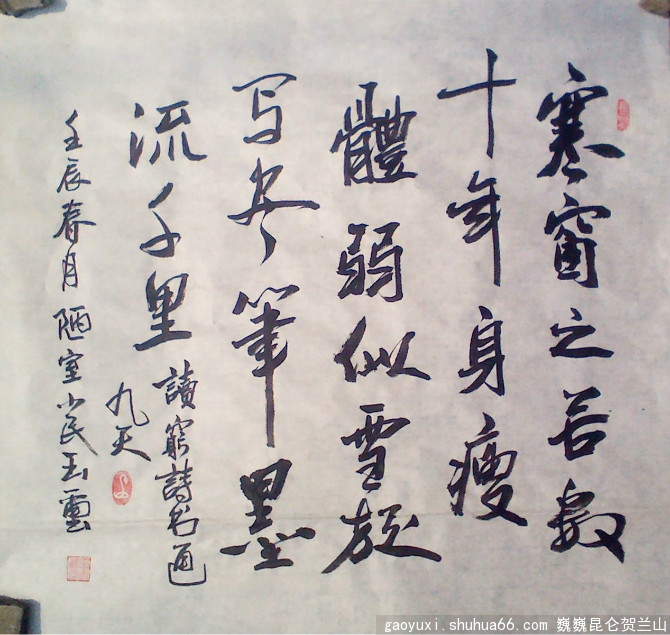 寒窗之苦数
十年身瘦
體弱似雪旋
写尽筆墨
流千里
讀窮詩书通
九天
壬辰春月 陋室小民玉雲
gaoyuxi.shuhua66.com 巍巍昆仑贺兰山